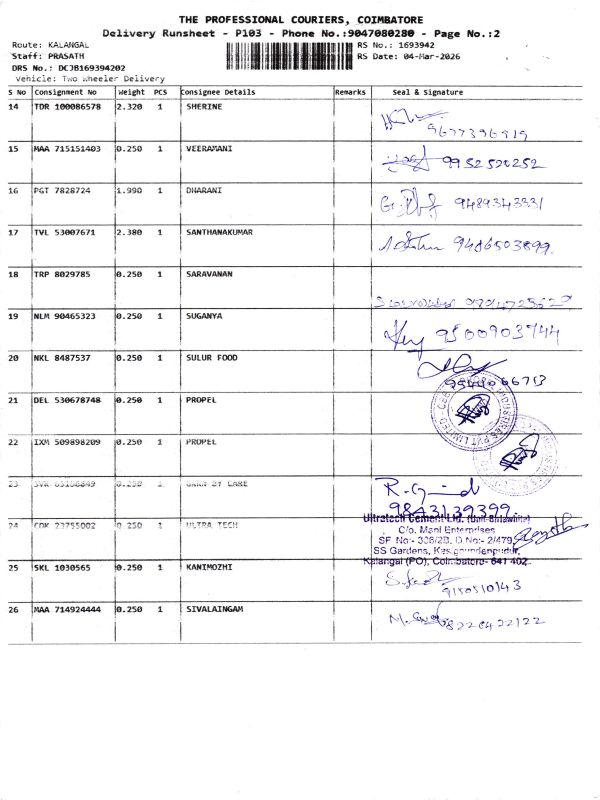 THE PROFESSIONAL COURIERS, COIMBATORE
Delivery Runsheet - P103 - Phone No.:9047080280 - Page No.:2
Route: KALANGAL
Staff: PRASATH
DRS No.: DCJB169394202
Vehicle: Two Wheeler Delivery
RS No.: 1693942
RS Date: 04-Mar-2026
S No Consignment No Weight PCS Consignee Details Remarks Seal & Signature
14 TDR 100086578 2.320 1 SHERINE
9677396819
15 MAA 715151403 0.250 1 VEERAMANI
9952520252
16 PGT 7828724 1.990 1 DHARANI
9489343331
17 TVL 53007671 2.380 1 SANTHANAKUMAR
9486503899
18 TRP 8029785 0.250 1 SARAVANAN
19 NLM 90465323 0.250 1 SUGANYA
9500903744
20 NKL 8487537 0.250 1 SULUR FOOD
21 DEL 530678748 0.250 1 PROPEL
22 IXM 509898209 0.250 1 PROPEL
23 0.250 1
9843139399
24 COK 23755002 0.250 1 ULTRA TECH
Ultratech Cement Ltd.
C/o. Mani Enterprises
SF No:- 338/2B, D No:- 2/479,
SS Gardens,
Kalangal (PO), Coimbatore- 641 402.
25 SKL 1030565 0.250 1 KANIMOZHI
9150510143
26 MAA 714924444 0.250 1 SIVALAINGAM
8220422122